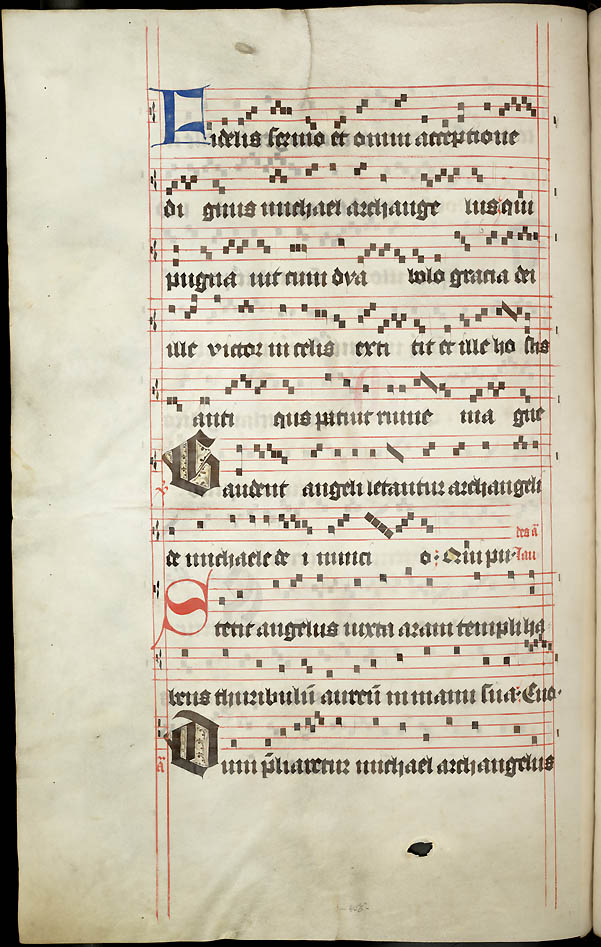 Fidelis sermo et omni acceptione
di gnus michael archange lus qui
pugna uit cum dra cone gracia dei
ille victor in celis exti tit et ille ho stis
anti quus patitur ruine ma gne
Gaudent angeli letantur archangeli
de michaele de i nunci o: Qui pu
Stetit angelus iuxta aram templi ha
bens thuribulū aureū in manu sua: Euo
Dum p̄liaretur michael archangelus